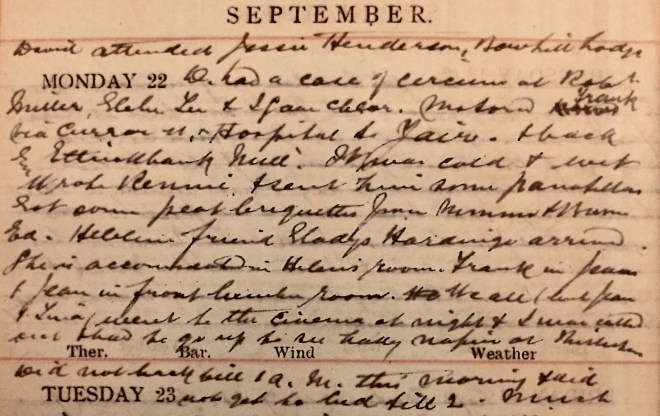 SEPTEMBER.
David attended Jessie Henderson, Bowhill Lodge
MONDAY 22 D. had a case of circum at Robt.
Miller, & I gave Motored Frank
via & Hospital to Yair. & back
Ettrickbank Mill. It was cold & wet
Wrote Rennie, & sent him some
Got some peat briquettes from Nimmo &
Ed. Helen's friend Gladys Harding arrived.
She is accomodated in Helen's room. Frank in Jean's
& Jean in front room. We all (but Jean
& ) went to the cinema at night & I was called
out & had to go up to see Lady Napier at
Ther. Bar. Wind Weather
Did not back till 1 a.m. this morning & did
TUESDAY 23 not get to bed till 2. Much